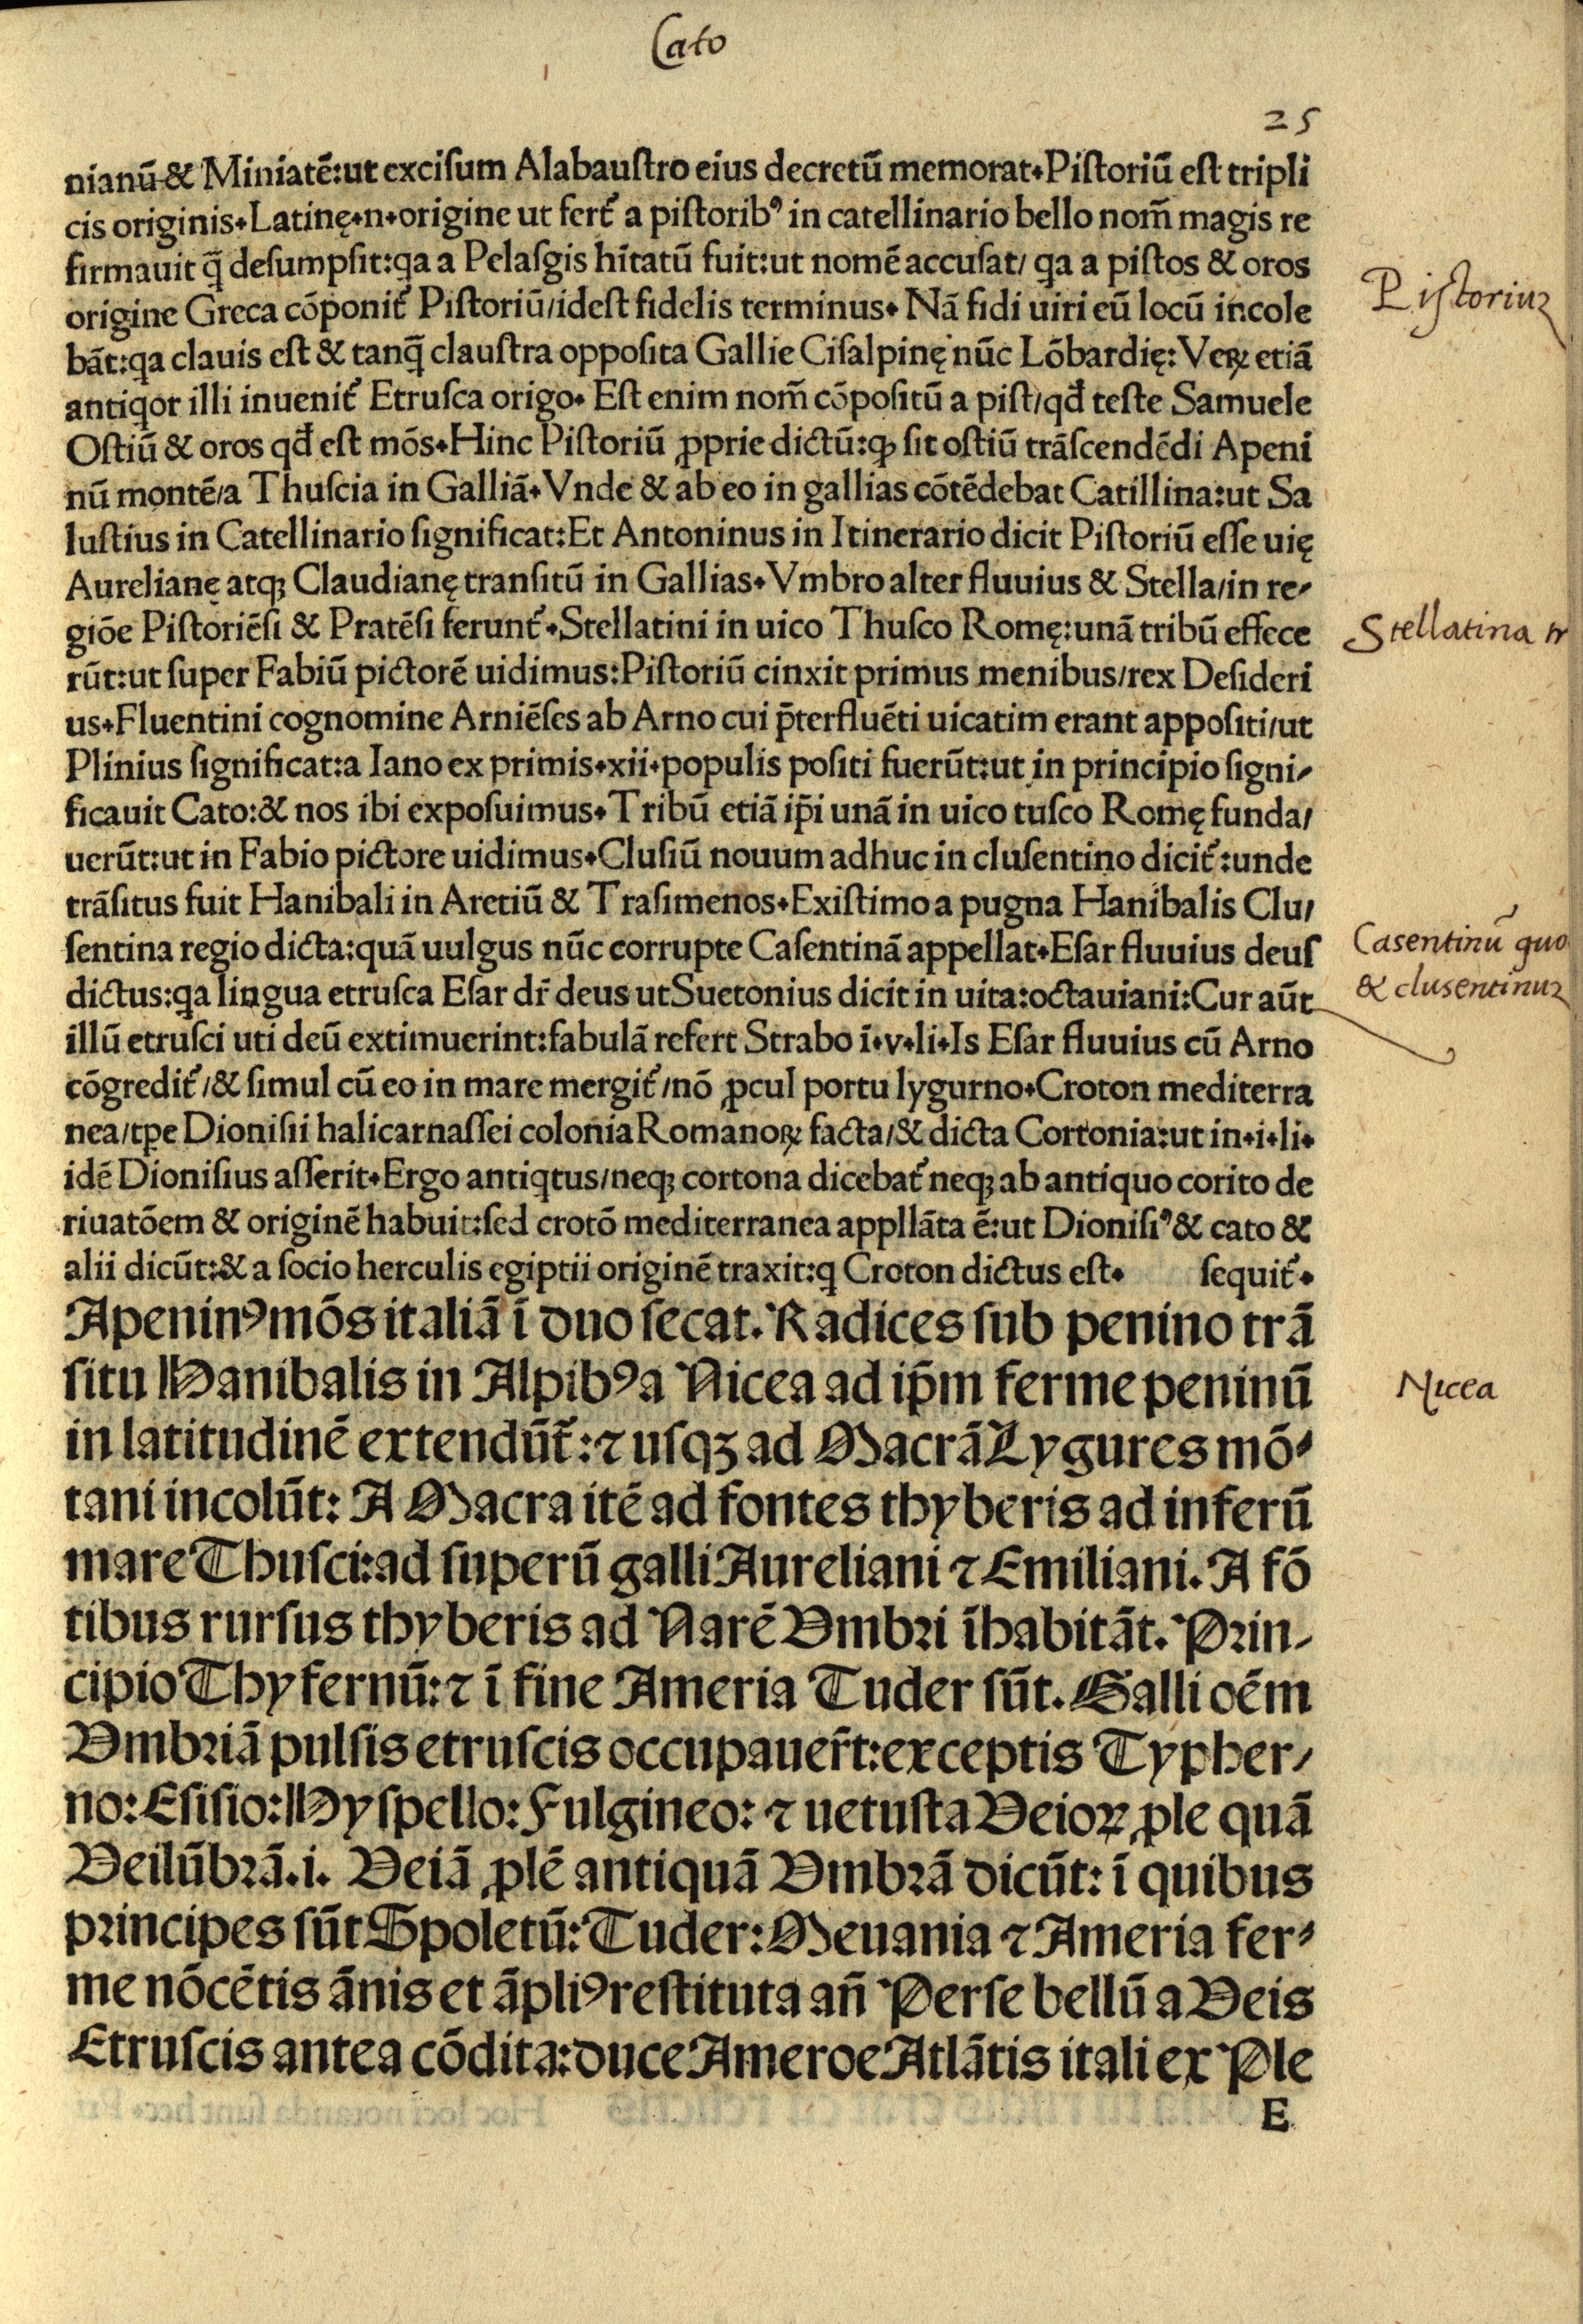 Cato
25
nianū & Miniatē:ut excisum Alabaustro eius decretū memorat.Pistoriū est tripli
cis originis.Latinę.n.origine ut fert᷑ a pistoribꝰ in catellinario bello nom̄ magis re
firmauit q̄ desumpsit:qa a Pelasgis hītatū fuit:ut nomē accusat/ qa a pistos & oros
origine Greca cōponit᷑ Pistoriū/idest fidelis terminus. Nā fidi uiri eū locū incole
Pistoriuꝫ
bāt:qa clauis est & tanq̄ claustra opposita Gallie Cisalpinę nūc Lōbardię: Veꝝ etiā
antiqor illi inuenit᷑ Etrusca origo. Est enim nom̄ cōpositū a pist/qđ teste Samuele
Ostiū & oros qđ est mōs.Hinc Pistoriū ꝓprie dictū:ꝙ sit ostiū trāscendēdi Apeni
nū montē/a Thuscia in Galliā.Vnde & ab eo in gallias cōtēdebat Catillina:ut Sa
lustius in Catellinario significat:Et Antoninus in Itinerario dicit Pistoriū esse uię
Aurelianę atqꝫ Claudianę transitū in Gallias.Vmbro alter fluuius & Stella/in re/
giōe Pistoriēsi & Pratēsi ferunt᷑.Stellatini in uico Thusco Romę:unā tribū effece
Stellatina tr
rūt:ut super Fabiū pictorē uidimus:Pistoriū cinxit primus menibus/rex Desideri
us.Fluentini cognomine Arniēses ab Arno cui p̄terfluēti uicatim erant appositi/ut
Plinius significat:a Iano ex primis.xii.populis positi fuerūt:ut in principio signi/
ficauit Cato:& nos ibi exposuimus.Tribū etiā ip̄i unā in uico tusco Romę funda/
uerūt:ut in Fabio pictore uidimus.Clusiū nouum adhuc in clusentino dicit᷑:unde
trāsitus fuit Hanibali in Aretiū & Trasimenos.Existimo a pugna Hanibalis Clu/
sentina regio dicta:quā uulgus nūc corrupte Casentinā appellat.Esar fluuius deus
Casentinū quo
dictus:qa lingua etrusca Esar dr̄ deus ut Suetonius dicit in uita:octauiani:Cur aūt
& clusentinuꝫ
illū etrusci uti deū extimuerint:fabulā refert Strabo ī.v.li.Is Esar fluuius cū Arno
cōgredit᷑/& simul cū eo in mare mergit᷑/nō ꝓcul portu lygurno.Croton mediterra
nea/tꝑe Dionisii halicarnassei colonia Romanoꝝ facta/& dicta Cortonia:ut in.i.li.
idē Dionisius asserit.Ergo antiqtus/neqꝫ cortona dicebat᷑ neqꝫ ab antiquo corito de
riuatōem & originē habuit:sed crotō mediterranea appllāta ē:ut Dionisiꝰ & cato &
alii dicūt:& a socio herculis egiptii originē traxit:q Croton dictus est. sequit᷑.
Apeninꝰ mōs italiā ī duo secat. Radices sub penino trā
situ Hanibalis in Alpibꝰ a Nicea ad ip̄m ferme peninū
Nicea
in latitudinē extendūt᷑:⁊ usqꝫ ad Macrā Lygures mō/
tani incolūt: A Macra itē ad fontes thyberis ad inferū
mare Thusci:ad superū galli Aureliani ⁊ Emiliani. A fō
tibus rursus thyberis ad Narē Vmbri īhabitāt. Prin/
cipio Thyfernū:⁊ ī fine Ameria Tuder sūt. Galli oēm
Vmbriā pulsis etruscis occupauer̄t:exceptis Typher/
no:Esisio:Hyspello:Fulgineo: ⁊ uetusta Veioꝝ ꝓle quā
Veilūbrā.i. Veiā ꝓlē antiquā Vmbrā dicūt: ī quibus
principes sūt Spoletū:Tuder:Meuania ⁊ Ameria fer/
me nōcētis ānis et āpliꝰ restituta an̄ Perse bellū a Veis
Etruscis antea cōdita:duce Ameroe Atlātis itali ex Ple
E